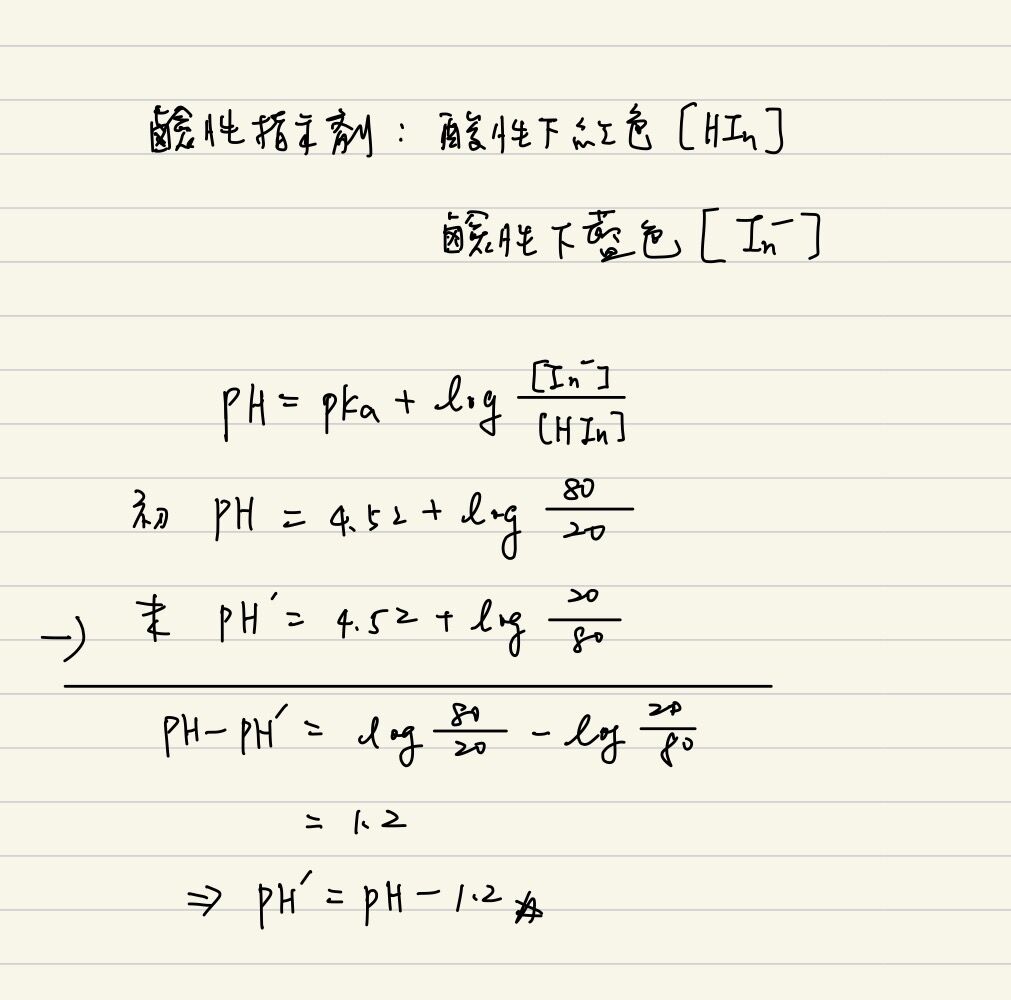 鹼性指示劑：酸性下紅色 [HIn]
鹼性下藍色 [In⁻]
pH = pKa + log [In⁻]/[HIn]
初 pH = 4.52 + log 80/20
-) 末 pH′ = 4.52 + log 20/80
pH - pH′ = log 80/20 - log 20/80
= 1.2
⇒ pH′ = pH - 1.2